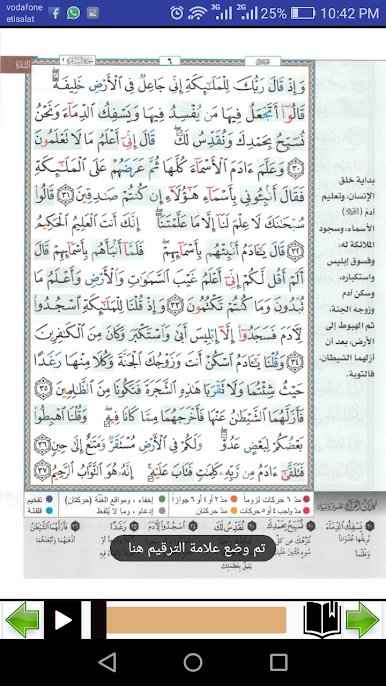 vodafone
etisalat
3G
2G
25%
10:42 PM
٦
وَإِذْ قَالَ رَبُّكَ لِلْمَلَٰٓئِكَةِ إِنِّي جَاعِلٌ فِي ٱلْأَرْضِ خَلِيفَةً
قَالُوٓا۟ أَتَجْعَلُ فِيهَا مَن يُفْسِدُ فِيهَا وَيَسْفِكُ ٱلدِّمَآءَ وَنَحْنُ
نُسَبِّحُ بِحَمْدِكَ وَنُقَدِّسُ لَكَ قَالَ إِنِّيٓ أَعْلَمُ مَا لَا تَعْلَمُونَ
٣٠ وَعَلَّمَ ءَادَمَ ٱلْأَسْمَآءَ كُلَّهَا ثُمَّ عَرَضَهُمْ عَلَى ٱلْمَلَٰٓئِكَةِ
فَقَالَ أَنۢبِـُٔونِي بِأَسْمَآءِ هَٰٓؤُلَآءِ إِن كُنتُمْ صَٰدِقِينَ ٣١ قَالُوا۟
سُبْحَٰنَكَ لَا عِلْمَ لَنَآ إِلَّا مَا عَلَّمْتَنَآ إِنَّكَ أَنتَ ٱلْعَلِيمُ ٱلْحَكِيمُ
٣٢ قَالَ يَٰٓـَٔادَمُ أَنۢبِئْهُم بِأَسْمَآئِهِمْ فَلَمَّآ أَنۢبَأَهُم بِأَسْمَآئِهِمْ قَالَ
أَلَمْ أَقُل لَّكُمْ إِنِّيٓ أَعْلَمُ غَيْبَ ٱلسَّمَٰوَٰتِ وَٱلْأَرْضِ وَأَعْلَمُ مَا
تُبْدُونَ وَمَا كُنتُمْ تَكْتُمُونَ ٣٣ وَإِذْ قُلْنَا لِلْمَلَٰٓئِكَةِ ٱسْجُدُوا۟
لِءَادَمَ فَسَجَدُوٓا۟ إِلَّآ إِبْلِيسَ أَبَىٰ وَٱسْتَكْبَرَ وَكَانَ مِنَ ٱلْكَٰفِرِينَ
٣٤ وَقُلْنَا يَٰٓـَٔادَمُ ٱسْكُنْ أَنتَ وَزَوْجُكَ ٱلْجَنَّةَ وَكُلَا مِنْهَا رَغَدًا
حَيْثُ شِئْتُمَا وَلَا تَقْرَبَا هَٰذِهِ ٱلشَّجَرَةَ فَتَكُونَا مِنَ ٱلظَّٰلِمِينَ ٣٥
فَأَزَلَّهُمَا ٱلشَّيْطَٰنُ عَنْهَا فَأَخْرَجَهُمَا مِمَّا كَانَا فِيهِ وَقُلْنَا ٱهْبِطُوا۟
بَعْضُكُمْ لِبَعْضٍ عَدُوٌّ وَلَكُمْ فِي ٱلْأَرْضِ مُسْتَقَرٌّ وَمَتَٰعٌ إِلَىٰ حِينٍ ٣٦
فَتَلَقَّىٰٓ ءَادَمُ مِن رَّبِّهِۦ كَلِمَٰتٍ فَتَابَ عَلَيْهِ إِنَّهُۥ هُوَ ٱلتَّوَّابُ ٱلرَّحِيمُ ٣٧
بداية خلق
الإنسان، وتعليم
آدم
الأسماء، وسجود
الملائكة له،
وفسوق إبليس
واستكباره،
وسكن آدم
وزوجه الجنة،
ثم الهبوط إلى
الأرض، بعد أن
أزلهما الشيطان،
فالتوبة.
مدّ ٦ حركات لزوماً مدّ ٢ أو ٤ أو ٦ جوازاً إخفاء، ومواقع الغُنَّة (حركتان) تفخيم
مدّ واجب ٤ أو ٥ حركات مدّ حركتان إدغام، وما لا يُلفظ قلقلة
يَسْفِكُ الدِّمَاءَ
نُسَبِّحُ بِحَمْدِكَ
نُقَدِّسُ لَكَ
اسْجُدُوا لِآدَمَ
رَغَدًا
فَأَزَلَّهُمَا الشَّيْطَانُ
تم وضع علامة الترقيم هنا